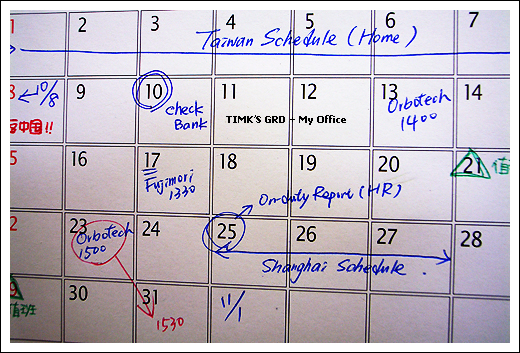 1 2 3 4 5 6 7
Taiwan Schedule (Home)
8 10/8 9 10 11 12 13 14
中国!!
check
Bank
TIMK'S GRD - My Office
Orbotech
1400
5 16 17 18 19 20 21 值
Fujimori
1330
On-duty Report (HR)
2 23 24 25 26 27 28
Orbotech
1500
Shanghai Schedule
9 30 31 11/1
值班
1530